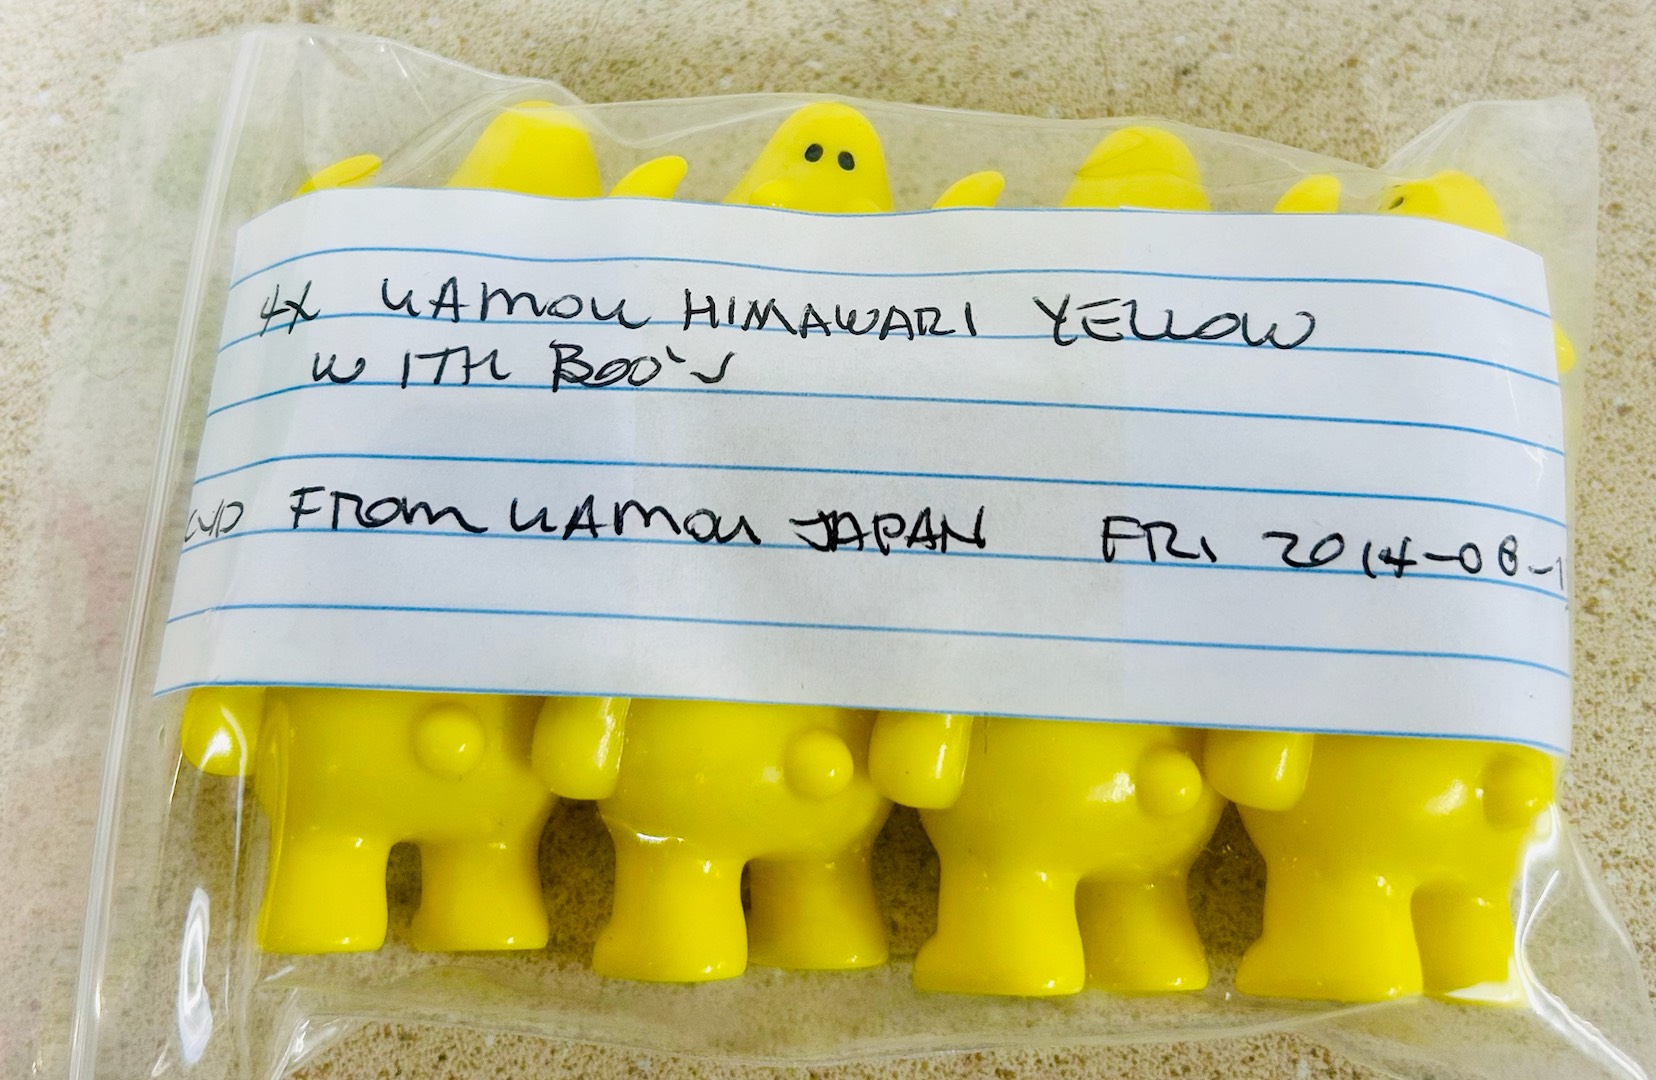 4X UAMOU HIMAWARI YELLOW
WITH BOO'S
FROM UAMOU JAPAN FRI 2014-08-1